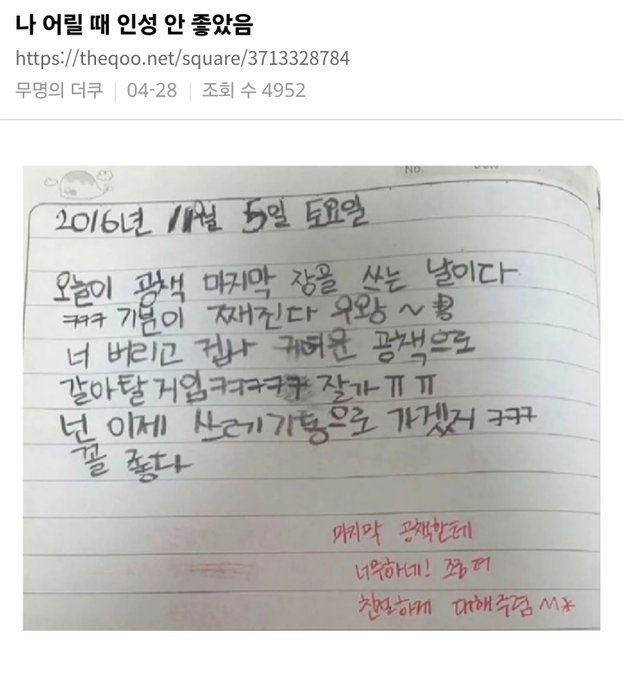 나 어릴 때 인성 안 좋았음
https://theqoo.net/square/3713328784
무명의 더쿠 | 04-28 | 조회 수 4952
No.
2016년 11월 5일 토요일
오늘이 공책 마지막 장을 쓰는 날이다
ㅋㅋㅋ 기분이 째진다 우왕~
너 버리고 겁나 귀여운 공책으로
갈아탈거임ㅋㅋㅋㅋㅋ 잘가 ㅠㅠ
넌 이제 쓰레기통으로 가겠지 ㅋㅋㅋ
꼴 좋다
마지막 공책한테
너무하네! 쫌 더
친절하게 대해주렴 ^^*